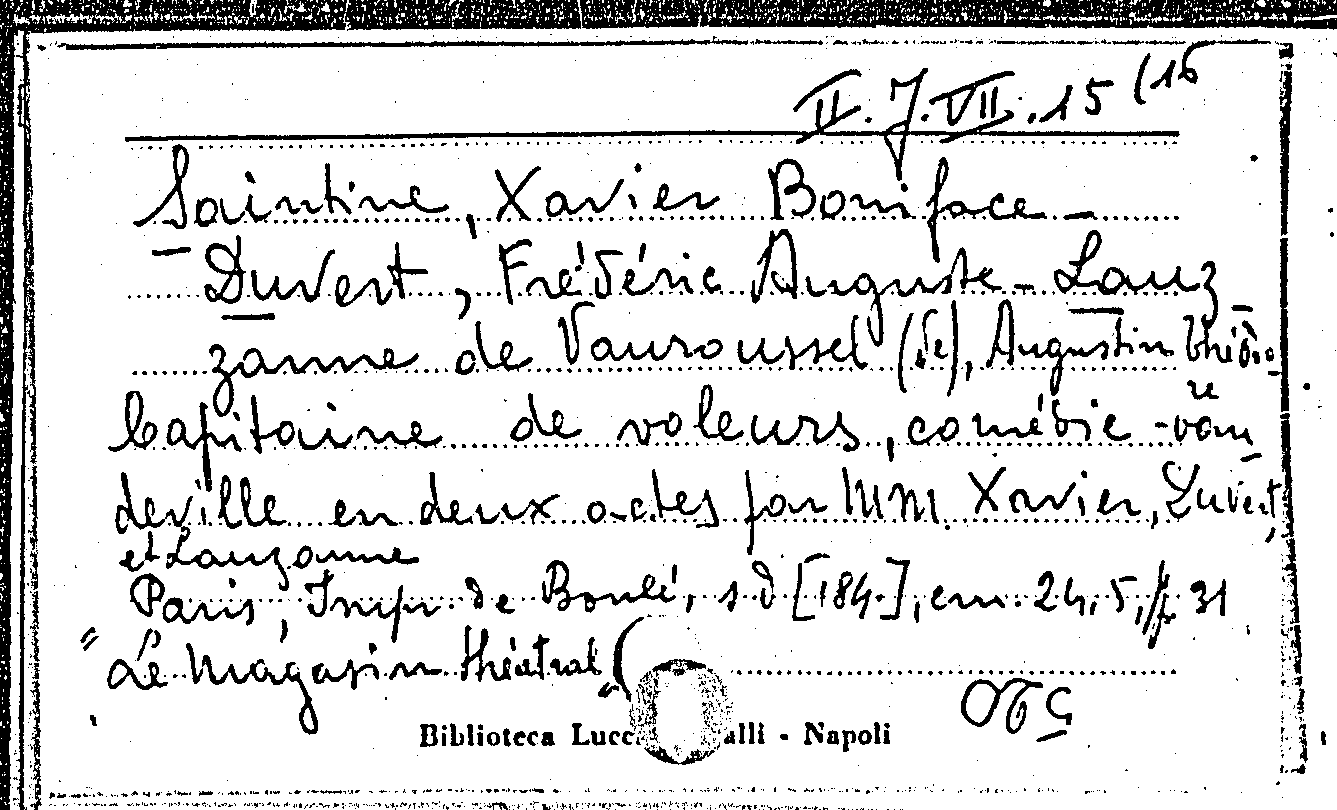 II. J. VII. 15 (16
Saintine, Xavier Boniface -
Duvert, Frédéric Auguste - Lauz
zanne de Vauroussel (de), Augustin Théodo
re
Capitaine de voleurs, comédie - vau
deville en deux actes par MM. Xavier, Duvert,
et Lauzanne
Paris, Impr. de Boulé, s d [184.], cm. 24,5, p. 31
"Le Magasin théatral"(
Biblioteca Lucc alli - Napoli